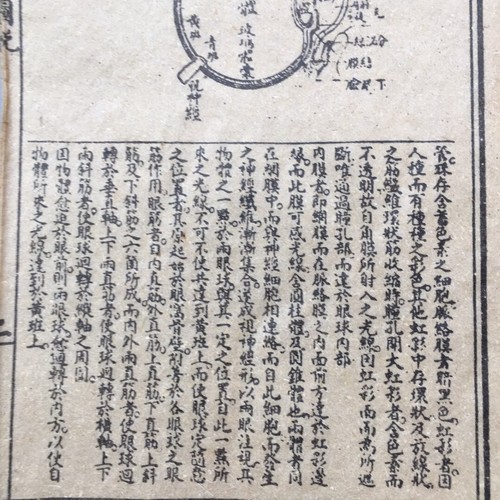 圖說
體
玻璃體囊
黃班
青班
視神經
球存含蓄色素之細胞。脈絡膜者黯黑色。虹彩者。因
人種而有種種之彩色。其他虹彩中存環狀及放線狀
之筋纖維。環狀筋收縮時。瞳孔開大。虹彩者含色素而
不透明。故自角膜所射入之光線。因虹彩而為所遮
斷。唯通過瞳孔部。而達於眼球內部。
內膜者。即網膜而在脈絡膜之內面。前方達於虹彩邊
緣。而此膜可感光線。含圓柱體及圓錐體也。兩體者。同
在網膜中。而與神經細胞相連絡。而自此細胞而發生
之神經纖維。漸漸集合。遂成視神經形。以兩眼注視其
物體之一點。兩眼球與其一定之位置。自此一點所
來之光線。不可不使其達到黃班上。而使眼球定隨意
之位置者。其原起筋於眼窩骨壁。附著於各眼球之眼
筋作用。眼筋者。自內直筋。外直筋。上直筋。下直筋。上斜
筋。及下斜筋之六箇所成。而內外兩直筋者。使眼球迴
轉於垂直軸。上下兩直筋者。使眼球迴轉於橫軸。上下
兩斜筋者。使眼球迴轉於縱軸之周圍。
因物體愈近於眼前。則兩眼球愈迴轉於內方。以使自
物體所來之光線。達到於黃班上。